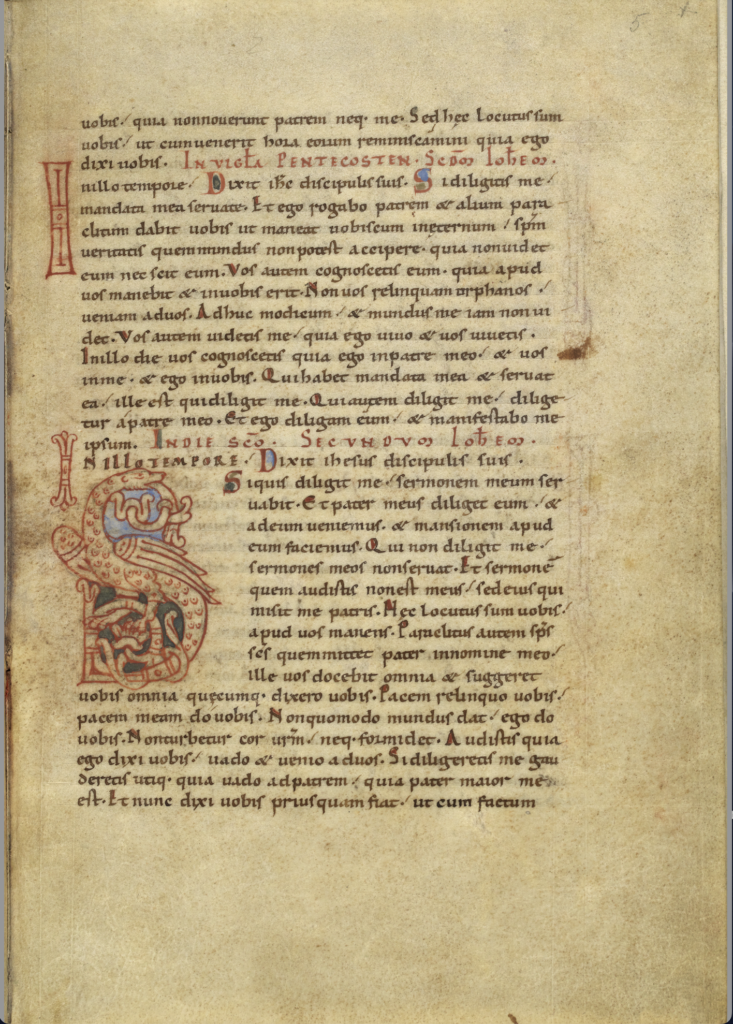 5
uobis / quia nonnouerunt patrem neq· me· Sed hęc Locutus sum
uobis / ut cum uenerit hora eorum reminiscamini quia ego
dixi uobis · IN VIGLA PENTECOSTEN · SCDM IOHEM ·
Inillo tempore · Dixit ihc discipulis suis · Si diligitis me
mandata mea seruate · Et ego rogabo patrem & alium para
clitum dabit uobis ut maneat uobiscum inęternum / spm
ueritatis quem mundus non potest accipere · quia non uidet
eum nec scit eum · Vos autem cognoscetis eum · quia apud
uos manebit & inuobis erit · Non uos relinquam orphanos /
ueniam aduos · Adhuc modicum / & mundus me iam non ui
det · Vos autem uidetis me / quia ego uiuo & uos uiuetis ·
Inillo die uos cognoscetis quia ego inpatre meo / & uos
inme · & ego inuobis · Qui habet mandata mea & seruat
ea / ille est qui diligit me · Qui autem diligit me / dilige
tur apatre meo · Et ego diligam eum / & manifestabo me
ipsum · IN DIE SCO · SECUNDVM IOHEM ·
IN ILLO TEMPORE · Dixit ihesus discipulis suis ·
Siquis diligit me / sermonem meum ser
uabit · Et pater meus diliget eum / &
adeum ueniemus · & mansionem apud
eum faciemus · Qui non diligit me /
sermones meos nonseruat · Et sermonē
quem audistis nonest meus / sed eius qui
misit me patris · Hęc Locutus sum uobis /
apud uos manens · Paraclitus autem sps
scs quem mittet pater innomine meo /
ille uos docebit omnia & suggeret
uobis omnia quęcumq· dixero uobis · Pacem relinquo uobis /
pacem meam do uobis · Nonquomodo mundus dat / ego do
uobis · Non turbetur cor urm / neq· formidet · Audistis quia
ego dixi uobis / uado & uenio aduos · Si diligeretis me gau
deretis utiq· quia uado adpatrem / quia pater maior me
est · Et nunc dixi uobis priusquam fiat / ut cum factum